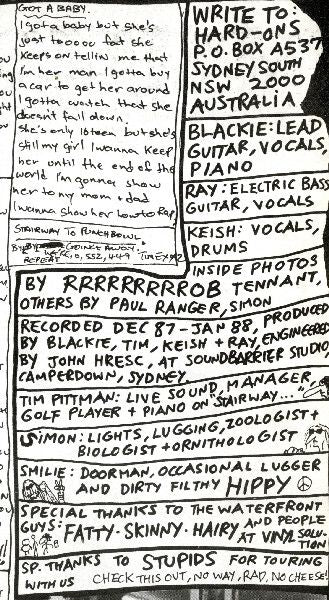 GOT A BABY.
I gotta baby but she's
just tooooo fat she
keeps on tellin me that
I'm her man I gotta buy
a car to get her around
I gotta watch that she
doesn't fall down.
She's only 16teen but she's
still my girl I wanna keep
her until the end of the
world I'm gonna show
her to my mom + dad
I wanna show her how to rap
STAIRWAY TO PUNCHBOWL.
BYE BYE GOING AWAY.
REPEAT
WRITE TO:
HARD-ONS
P.O. BOX A537
SYDNEY SOUTH
NSW 2000
AUSTRALIA
BLACKIE: LEAD
GUITAR, VOCALS,
PIANO
RAY: ELECTRIC BASS
GUITAR, VOCALS
KEISH: VOCALS,
DRUMS
INSIDE PHOTOS
BY RRRRRRRRROB TENNANT,
OTHERS BY PAUL RANGER, SIMON
RECORDED DEC 87-JAN 88, PRODUCED
BY BLACKIE, TIM, KEISH + RAY, ENGINEERED
BY JOHN HRESC, AT SOUNDBARRIER STUDIO,
CAMPERDOWN, SYDNEY
TIM PITTMAN: LIVE SOUND, MANAGER
GOLF PLAYER + PIANO ON "STAIRWAY..."
SIMON: LIGHTS, LUGGING, ZOOLOGIST +
BIOLOGIST + ORNITHOLOGIST
SMILIE: DOORMAN, OCCASIONAL LUGGER
AND DIRTY FILTHY HIPPY
SPECIAL THANKS TO THE WATERFRONT
GUYS: FATTY-SKINNY-HAIRY, AND PEOPLE
AT VINYL SOLU-
TION
SP. THANKS TO STUPIDS FOR TOURING
WITH US CHECK THIS OUT, NO WAY, RAD, NO CHEESE!